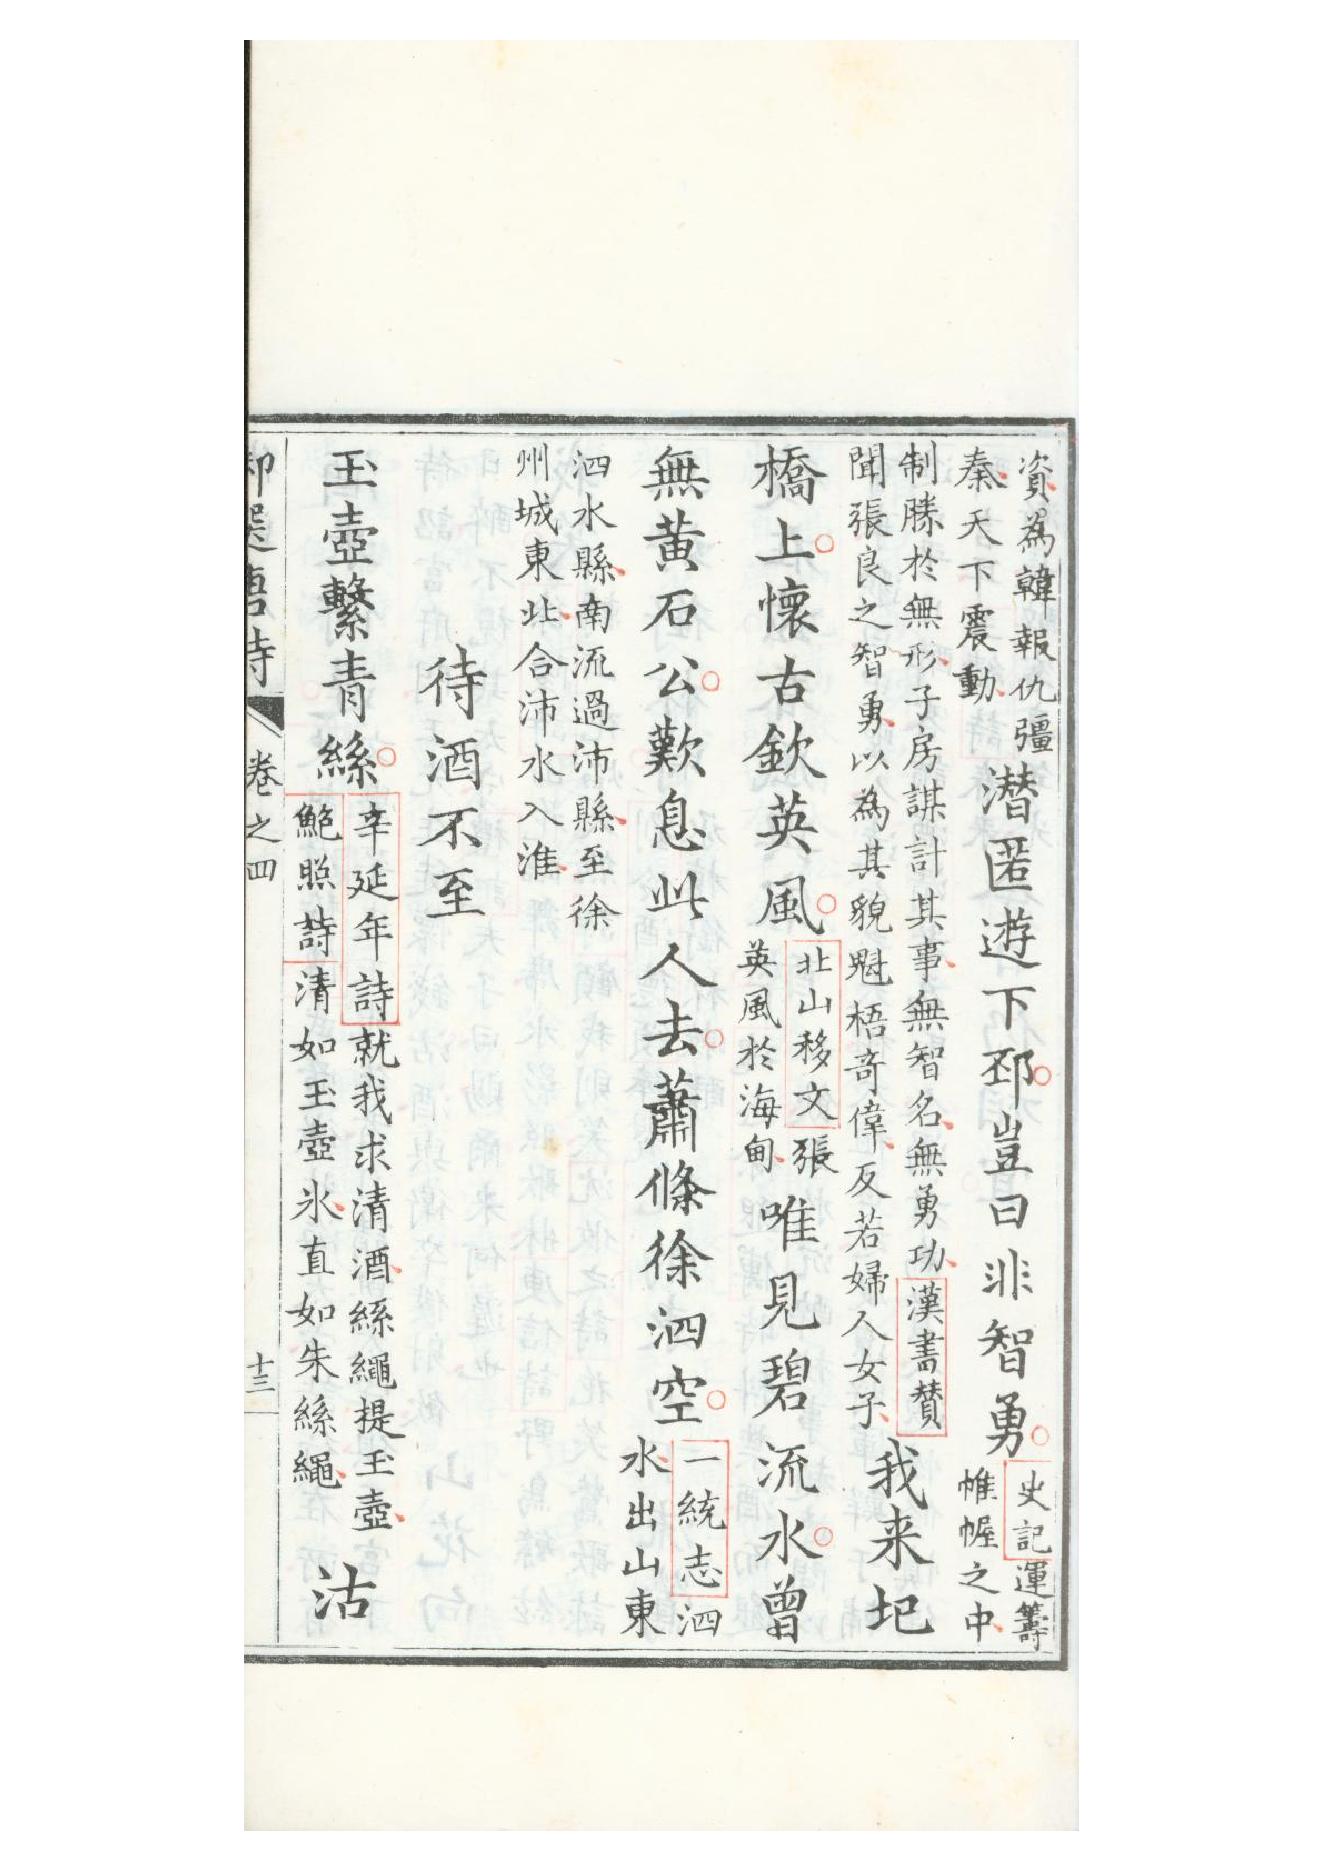 資為韓報仇彊
秦天下震動
潛匿遊下邳豈曰非智勇
史記運籌
帷幄之中
制勝於無形子房謀計其事無智名無勇功漢書贊
聞張良之智勇以為其貌魁梧竒偉反若婦人女子
我来圯
橋上懷古欽英風
北山移文張
英風於海甸
唯見碧流水曾
無黄石公歎息此人去蕭條徐泗空
一統志泗
水出山東
泗水縣南流過沛縣至徐
州城東北合沛水入淮
待酒不至
玉壺繫青絲
辛延年詩就我求清酒絲繩提玉壺
鮑照詩清如玉壺氷直如朱絲繩
沽
御選唐詩
卷之四
十三